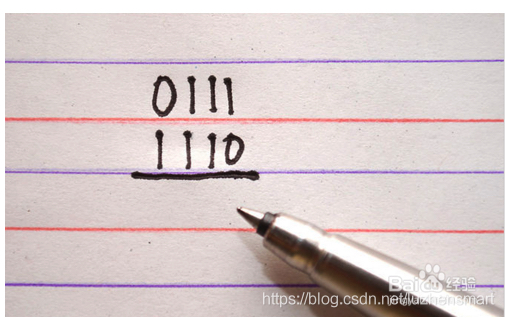 0111
1110
Baidu 经验
https://blog.csdn.net/luzhensmart